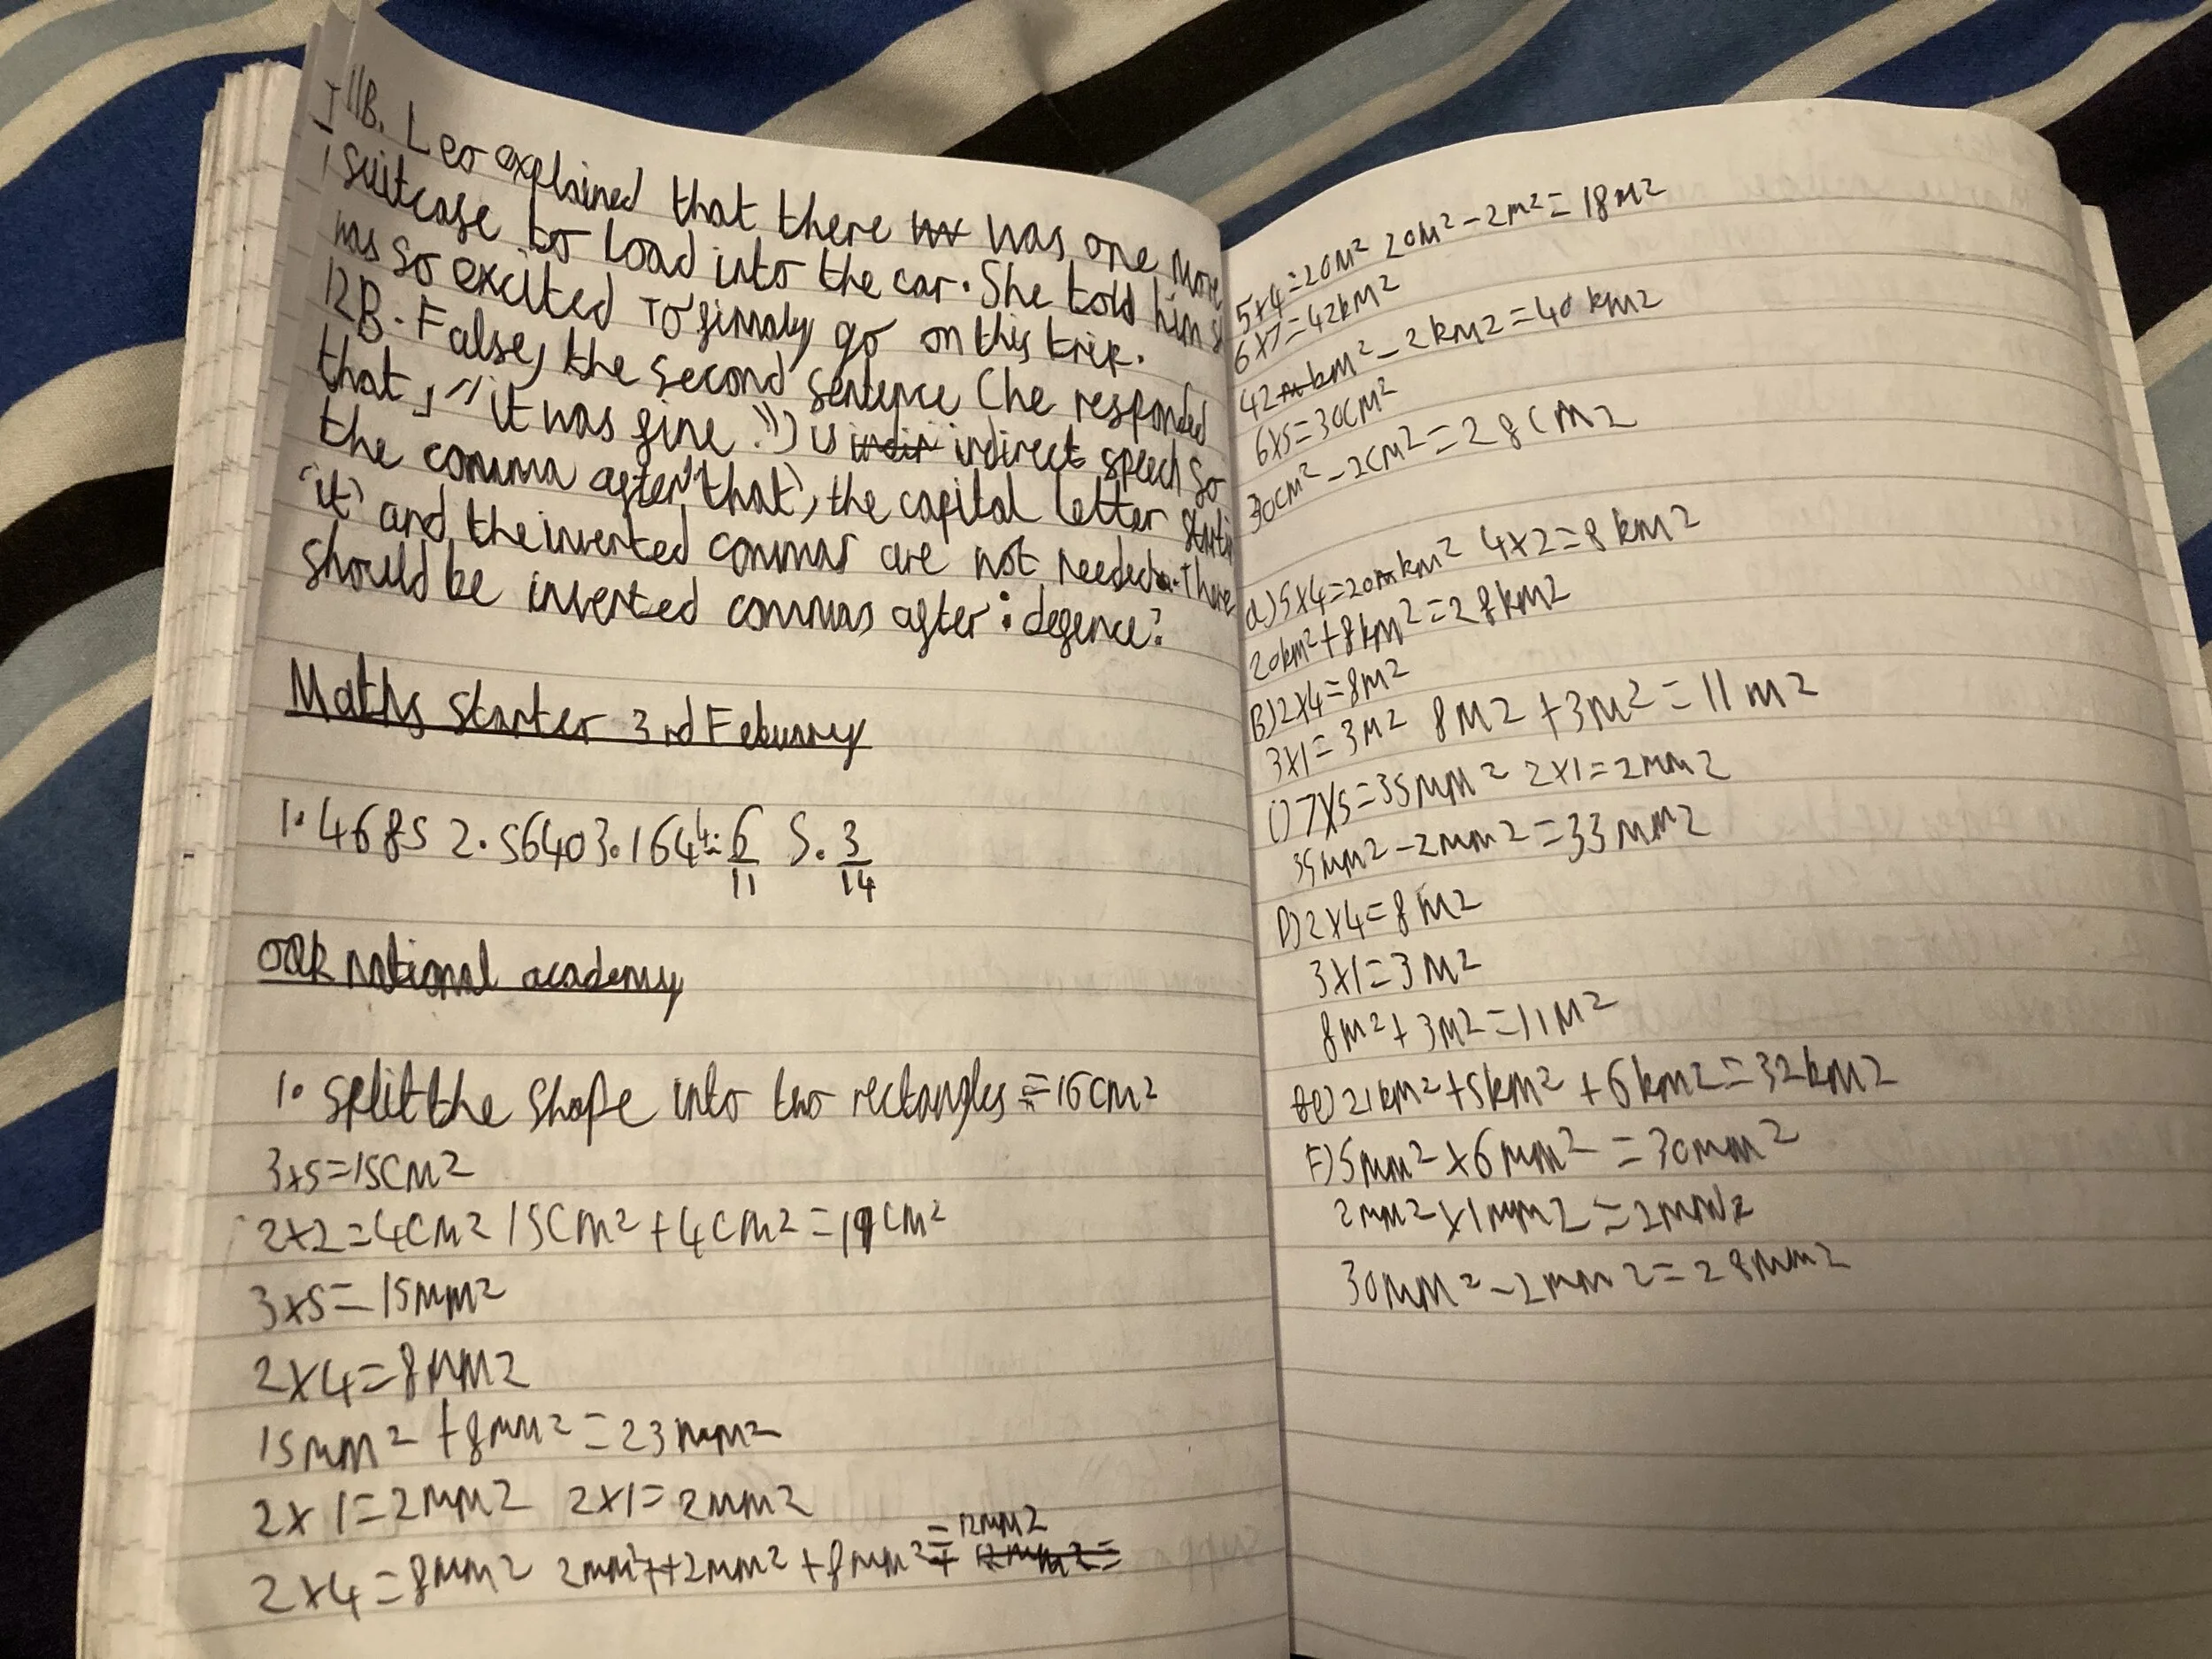 11B. Leo explained that there was one more
suitcase to load into the car. She told him s
was so excited To finnaly go on this trip.
12B. False, the second sentence (he responded
that, "it was fine.") is indirect speech so
the comma after 'that', the capital letter starti
'it' and the inverted commas are not needed. There
should be inverted commas after: defence?
Maths starter 3rd Feburary
1. 4685 2. 5640 3. 164 4. 6/11 5. 3/14
Oak national academy
1. split the shape into two rectangles = 16cm²
3x5=15cm²
2x2=4cm² 15cm²+4cm²=19cm²
3x5=15mm²
2x4=8mm²
15mm²+8mm²=23mm²
2x1=2mm² 2x1=2mm²
2x4=8mm² 2mm²+2mm²+8mm²=12mm²
5x4=20m² 20m²-2m²=18m²
6x7=42km²
42km²-2km²=40km²
6x5=30cm²
30cm²-2cm²=28cm²
a) 5x4=20km² 4x2=8km²
20km²+8km²=28km²
B) 2x4=8m²
3x1=3m² 8m²+3m²=11m²
C) 7x5=35mm² 2x1=2mm²
35mm²-2mm²=33mm²
D) 2x4=8m²
3x1=3m²
8m²+3m²=11m²
e) 21km²+5km²+6km²=32km²
F) 5mm²x6mm²=30mm²
2mm²x1mm²=2mm²
30mm²-2mm²=28mm²